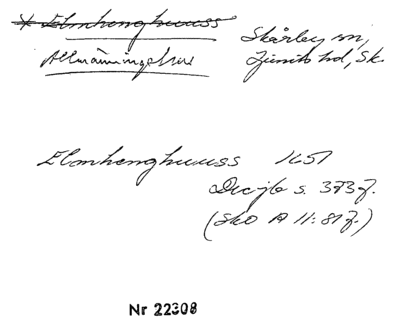 * Elmhenghuuss
Skårby sn,
Allmänningshus
Ljunits hd, Sk.
Elmhenghuuss 1651
Decjb s. 373 f.
(Sko A 11:81 f.)
Nr 22308